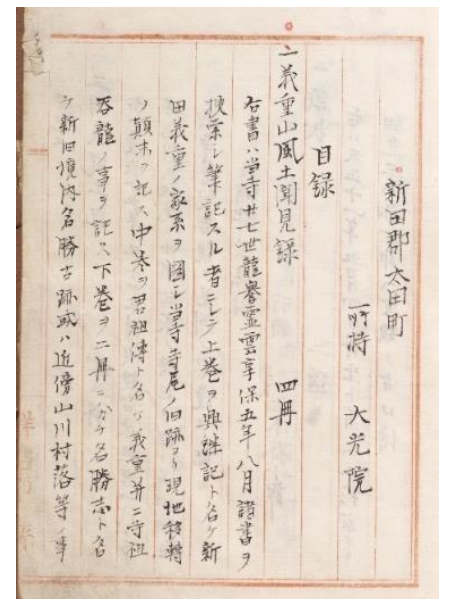 新田郡太田町
所蔵 大光院
目録
一義重山風土聞見録 四冊
右書ハ当寺廿七世龍誉霊雲享保五年八月諸書ヲ
捜索シ筆記スル者ニシテ上巻ヲ興雑記ト名ケ新
田義重ノ家系ヲ図シ当寺寺尾ノ旧跡ヨリ現地移轉
ノ顛末ヲ記ス中巻ヲ君祖傳ト名ケ義重并ニ寺祖
呑龍ノ事ヲ記ス下巻ヲ二冊ニ分チ名勝志ト名
ケ新旧境内名勝古跡或ハ近傍山川村落等ノ事